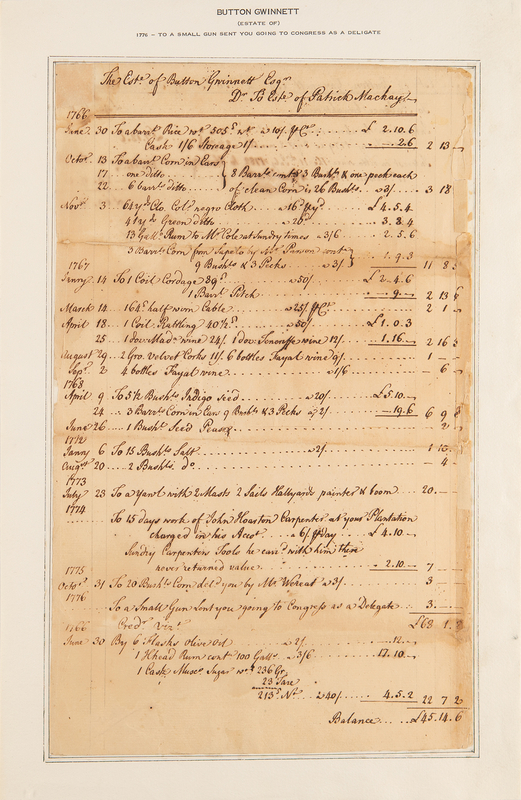 BUTTON GWINNETT
(ESTATE OF)
1776 – TO A SMALL GUN SENT YOU GOING TO CONGRESS AS A DELIGATE
The Este of Button Gwinnett Esqr
Dr To Este of Patrick Mackay
1766
June 30 To a barrl Rice wt 505 lb nt a 10/ ₽ Ct £ 2.10.6
Cash 1/6 Storeage 1/ 2.6 2 13
Octor 13 To a barrl Corn in Ears
17 one ditto 8 Barrs contg 3 Bushls & one peck each
22 6 barrs ditto of clean Corn is 26 Bushls a 3/ 3 18
Novr 3 64 yds Clo. Cold negro Cloth a 16d ₽ yd £ 4.5.4
41 yds Green ditto 20d 3.8.4
13 Galls Rum to Mr Cole at Sundry times a 3/6 2.5.6
3 Barrs Corn from Sapelo by Mr Panson cont
9 Bushls & 3 Pecks a 3/ 1.9.3 11 8
1767
Janry 14 To 1 Coil Cordage 89 lb a 50/ £ 2.4.6
1 Barrl Pitch 9 2 13
March 14 164 lb half worn Cable a 25/ ₽ Ct 2 1
April 18 1 Coil Rattling 40 ½ lb a 50/ £1.0.3
25 1 doz Mada wine 24/ 1 doz Teneriffe wine 12/ 1.16 2 16
August 29 2 Gro. Velvet Corks 11/ 6 bottles Fayal wine 9/ 1
Sepr 2 4 bottles Fayal wine a 1/6 6
1768
April 9 To 5 ½ Bushls Indigo Seed a 20/ £5.10
24 3 Barrs Corn in Ears 9 Bushls & 3 Pecks a 2/ 19.6 6 9
June 26 1 Bushl Seed Pease 2
1772
Janry 6 To 15 Bushls Salt a 2/ 1 10
Augt 20 2 Bushls do 4
1773
July 23 To a Yawl with 2 Masts 2 Sails Hallyards painter & boom 20
1774
To 15 days work of John Hoaston Carpenter at your Plantation
charged in his Acct a 6/ ₽ day £ 4.10
Sundry Carpenters Tools he card with him there
never returned value 2.10 7
1775
Octor 31 To 20 Bushls Corn deld you by Mr Wereat a 3/ 3
1776
To a Small Gun Sent you going to Congress as a Delegate 3
£63 1.8
1766 Credr Vizt
June 30 By 6 Flasks Olive Oil a 2/ 12
1 Hhead Rum cont 100 Galls a 3/6 17.10
1 Cask Musco Sugar wt 236 Gr
23 Tare
213 Nt a 40/ 4.5.2 22 7 2
Balance £45.14.6